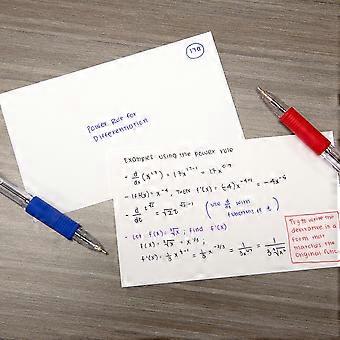 Power Rule for
Differentiation
Examples using the power rule
• d/dx (x^1.7) = 1.7x^(1.7-1) = 1.7x^0.7
• If f(x) = x^-4, then f'(x) = (-4)x^(-4-1) = -4x
• d/dt t^√2 = √2 t^(√2-1) (use d/dt with
functions of t)
• Let f(x) = ³√x ; find f'(x)
f(x) = ³√x = x^1/3
f'(x) = 1/3 x^(1/3-1) = 1/3 x^-2/3 = 1/(3x^2/3) = 1/(3 ³√x²)
Try to write the
derivative in a
form that
matches the
original func